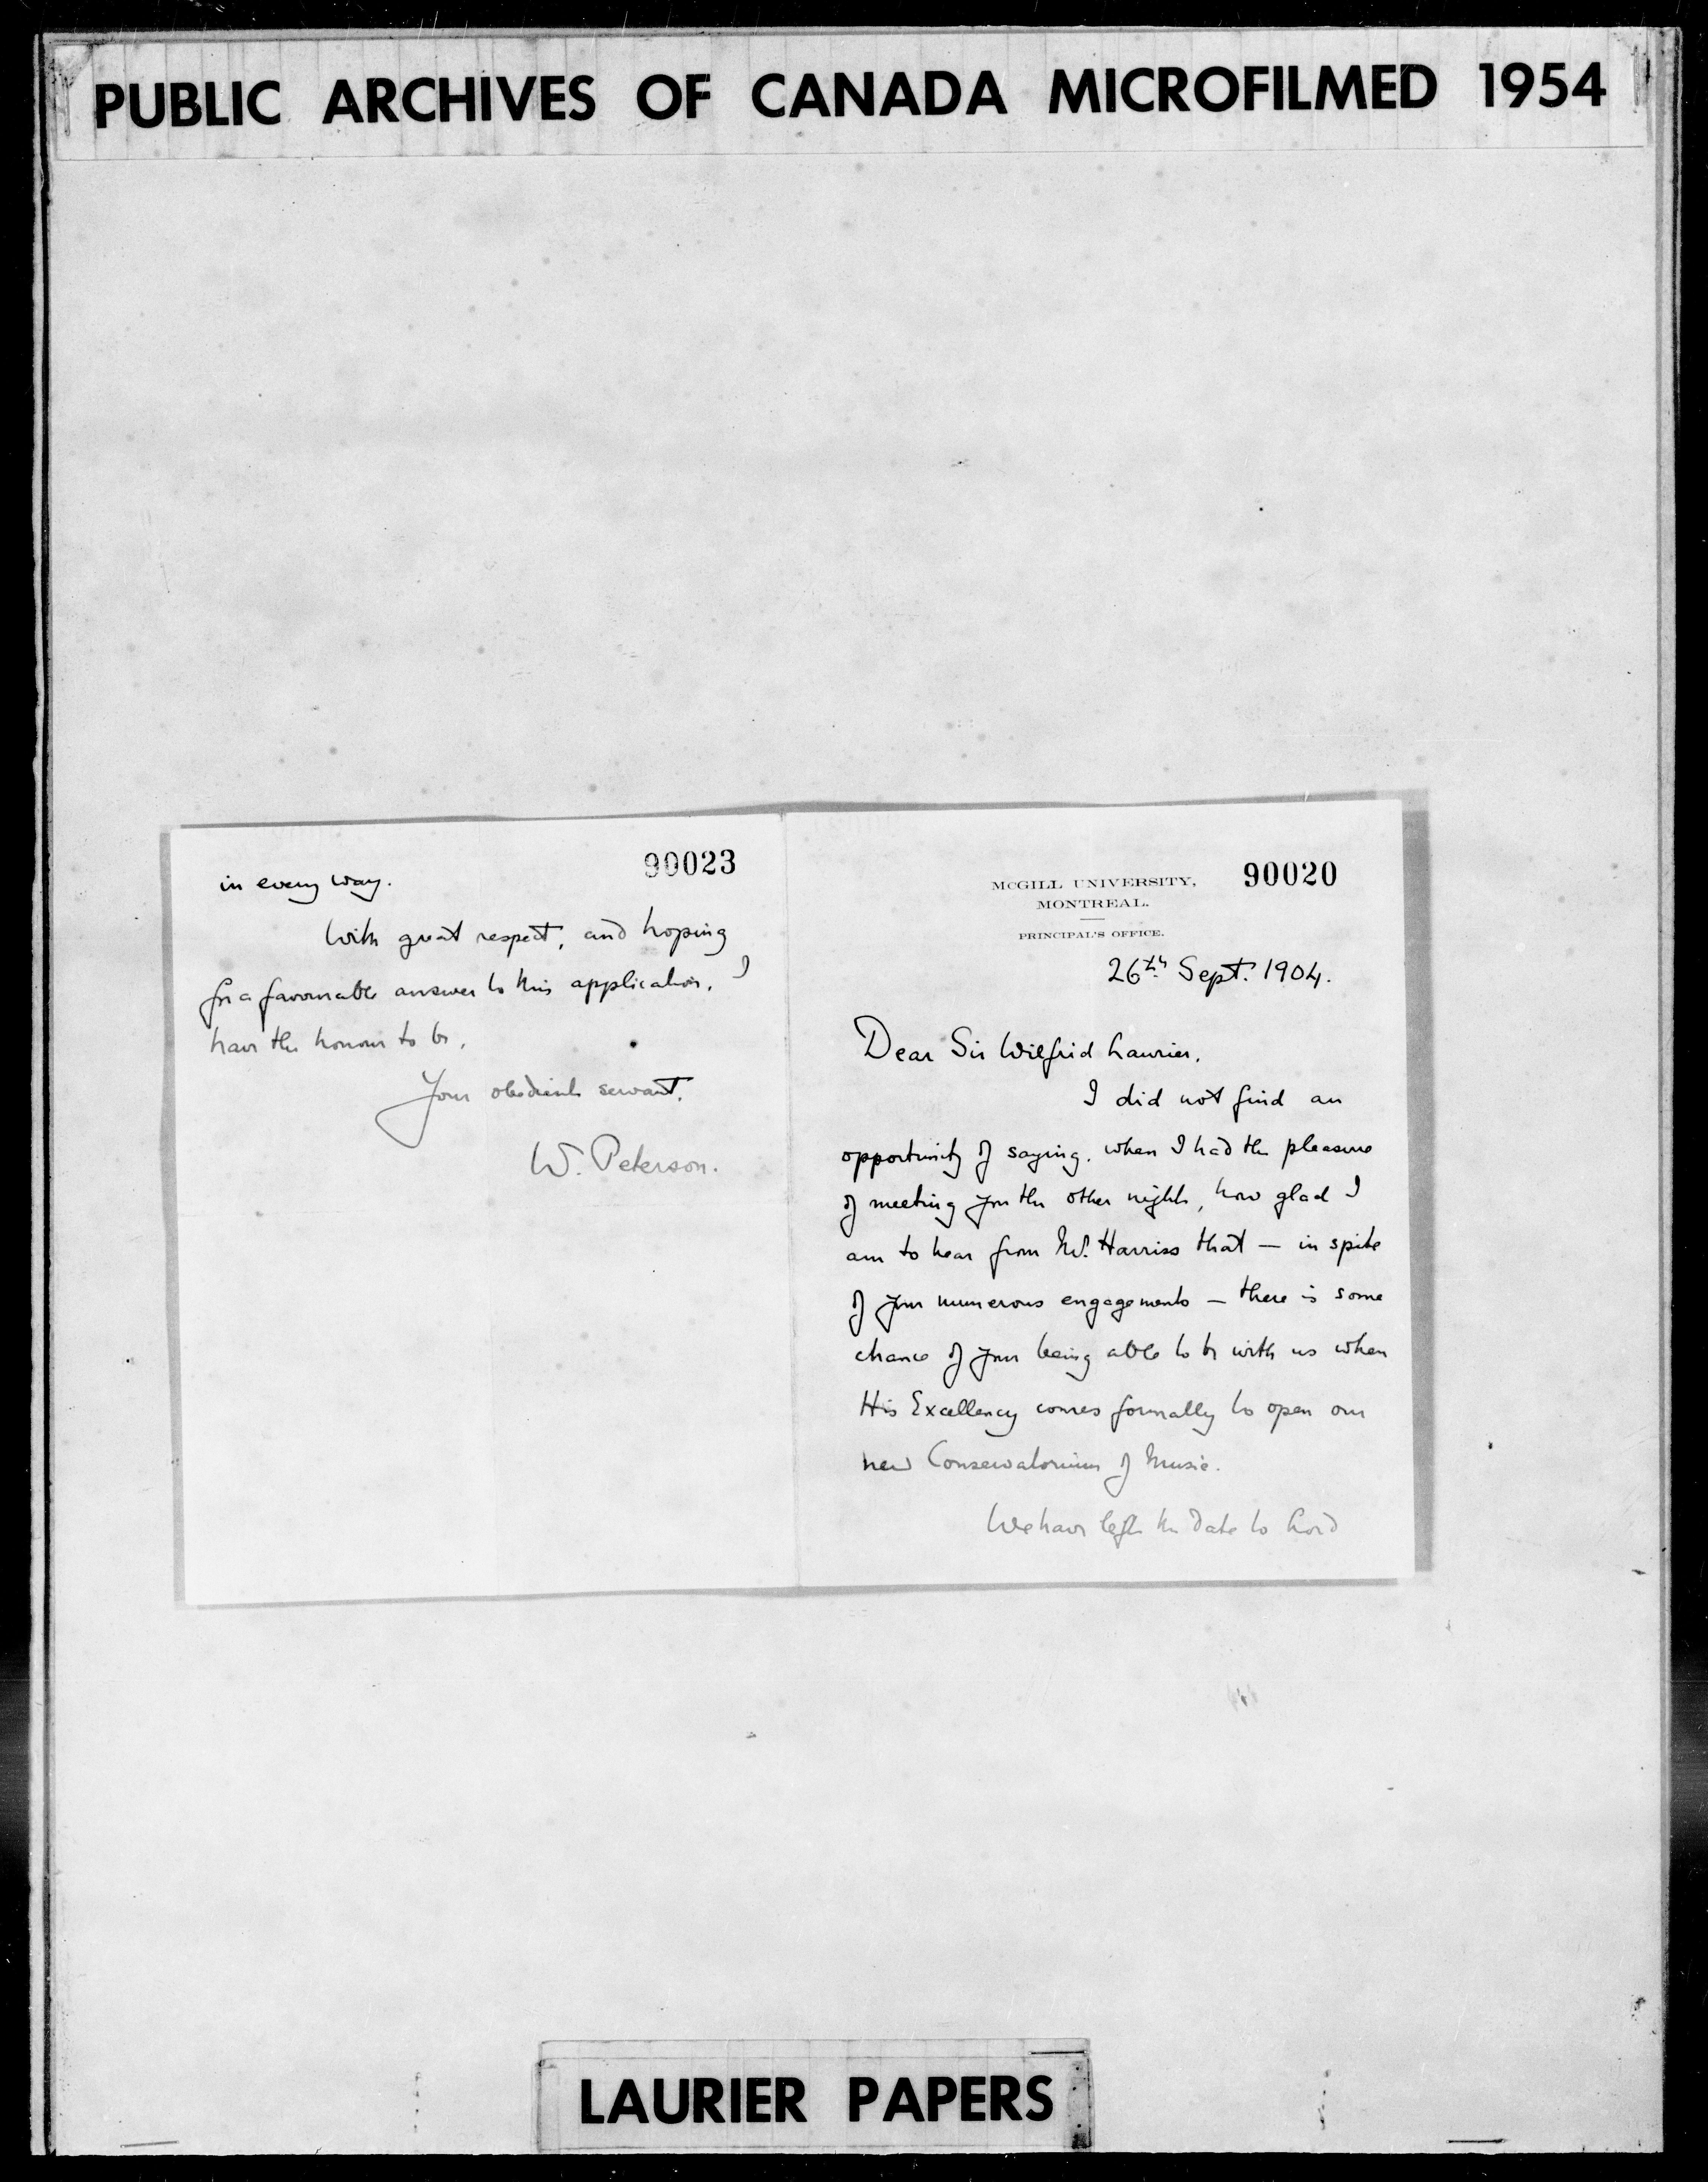 PUBLIC ARCHIVES OF CANADA MICROFILMED 1954
90023
in every way.
With great respect, and hoping
for a favourable answer to this application, I
have the honour to be,
Your obedient servant,
W. Peterson.
90020
McGILL UNIVERSITY,
MONTREAL.
PRINCIPAL'S OFFICE.
26th Sept. 1904.
Dear Sir Wilfrid Laurier,
I did not find an
opportunity of saying, when I had the pleasure
of meeting you the other night, how glad I
am to hear from Mr. Harriss that — in spite
of your numerous engagements — there is some
chance of your being able to be with us when
His Excellency comes formally to open our
new Conservatorium of Music.
We have left the date to Lord
LAURIER PAPERS